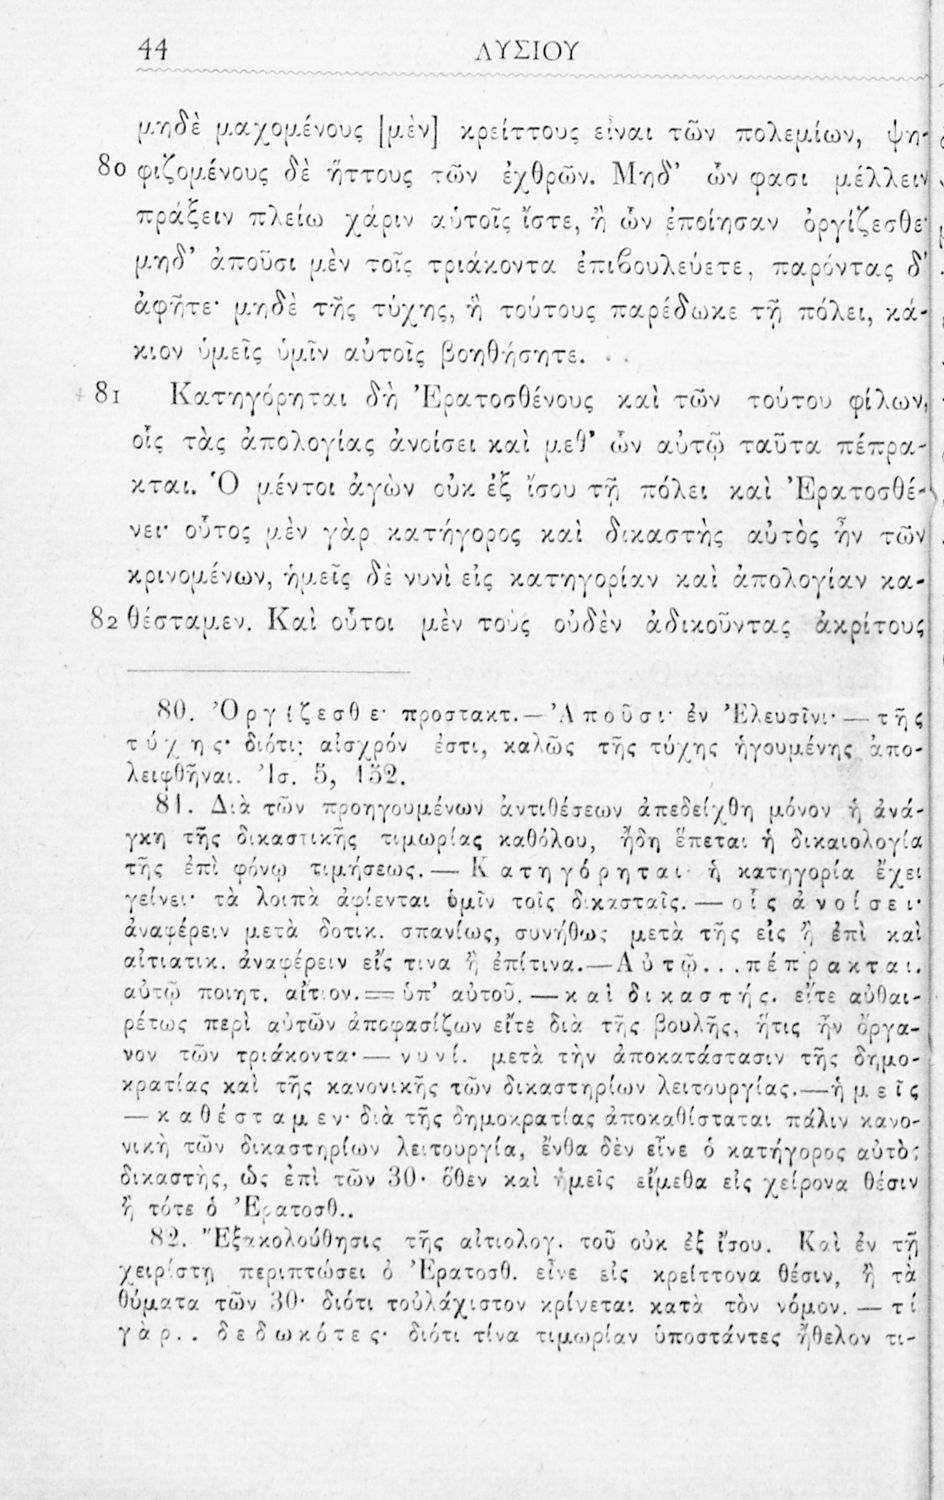 44 ΛΥΣΙΟΥ
μηδὲ μαχομένους [μὲν] κρείττους εἶναι τῶν πολεμίων, ψη-
80 φιζομένους δὲ ἥττους τῶν ἐχθρῶν. Μηδ’ ὧν φασι μέλλειν
πράξειν πλείω χάριν αὐτοῖς ἴστε, ἢ ὧν ἐποίησαν ὀργίζεσθε·
μηδ’ ἀποῦσι μὲν τοῖς τριάκοντα ἐπιβουλεύετε, παρόντας δ’
ἀφῆτε· μηδὲ τῆς τύχης, ἣ τούτους παρέδωκε τῇ πόλει, κά-
κιον ὑμεῖς ὑμῖν αὐτοῖς βοηθήσητε.
81 Κατηγόρηται δὴ Ἐρατοσθένους καὶ τῶν τούτου φίλων,
οἷς τὰς ἀπολογίας ἀνοίσει καὶ μεθ’ ὧν αὐτῷ ταῦτα πέπρα-
κται. Ὁ μέντοι ἀγὼν οὐκ ἐξ ἴσου τῇ πόλει καὶ Ἐρατοσθέ-
νει· οὗτος μὲν γὰρ κατήγορος καὶ δικαστὴς αὐτὸς ἦν τῶν
κρινομένων, ἡμεῖς δὲ νυνὶ εἰς κατηγορίαν καὶ ἀπολογίαν κα-
82 θέσταμεν. Καὶ οὗτοι μὲν τοὺς οὐδὲν ἀδικοῦντας ἀκρίτους
80. Ὀργίζεσθε· προστακτ.—Ἀποῦσι· ἐν Ἐλευσῖνι·—τῆς
τύχης· διότι; αἰσχρόν ἐστι, καλῶς τῆς τύχης ἡγουμένης ἀπο-
λειφθῆναι. Ἰσ. 5, 152.
81. Διὰ τῶν προηγουμένων ἀντιθέσεων ἀπεδείχθη μόνον ἡ ἀνά-
γκη τῆς δικαστικῆς τιμωρίας καθόλου, ἤδη ἕπεται ἡ δικαιολογία
τῆς ἐπὶ φόνῳ τιμήσεως.—Κατηγόρηται· ἡ κατηγορία ἔχει
γείνει· τὰ λοιπὰ ἀφίενται ὑμῖν τοῖς δικασταῖς.—οἷς ἀνοίσει·
ἀναφέρειν μετὰ δοτικ. σπανίως, συνήθως μετὰ τῆς εἰς ἢ ἐπὶ καὶ
αἰτιατικ. ἀναφέρειν εἴς τινα ἢ ἐπίτινα.—Αὐτῷ...πέπρακται.
αὐτῷ ποιητ. αἴτιον.=ὑπ’ αὐτοῦ.—καὶ δικαστής. εἴτε αὐθαι-
ρέτως περὶ αὐτῶν ἀποφασίζων εἴτε διὰ τῆς βουλῆς, ἥτις ἦν ὄργα-
νον τῶν τριάκοντα·—νυνί. μετὰ τὴν ἀποκατάστασιν τῆς δημο-
κρατίας καὶ τῆς κανονικῆς τῶν δικαστηρίων λειτουργίας.—ἡμεῖς
—καθέσταμεν· διὰ τῆς δημοκρατίας ἀποκαθίσταται πάλιν κανο-
νικὴ τῶν δικαστηρίων λειτουργία, ἔνθα δὲν εἶνε ὁ κατήγορος αὐτὸς
δικαστὴς, ὡς ἐπὶ τῶν 30· ὅθεν καὶ ἡμεῖς εἴμεθα εἰς χείρονα θέσιν
ἢ τότε ὁ Ἐρατοσθ..
82. Ἐξακολούθησις τῆς αἰτιολογ. τοῦ οὐκ ἐξ ἴσου. Καὶ ἐν τῇ
χειρίστῃ περιπτώσει ὁ Ἐρατοσθ. εἶνε εἰς κρείττονα θέσιν, ἢ τὰ
θύματα τῶν 30· διότι τοὐλάχιστον κρίνεται κατὰ τὸν νόμον.—τί
γὰρ.. δεδωκότες· διότι τίνα τιμωρίαν ὑποστάντες ἤθελον τι-